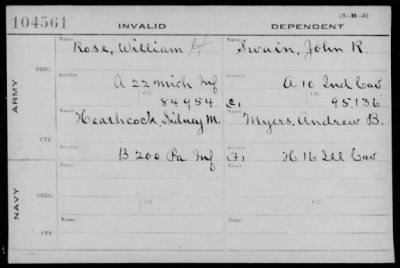 104561 INVALID DEPENDENT (3-H-3)
Name Rose, William H Name Swain, John R.
ARMY
ORIG. Service A 22 Mich Inf Service A 10 Ind Cav
Ctf. 84954 C, Ctf. 95,136
CTF. Name Heathcock, Sidney M. Name Myers, Andrew B.
Service B 200 Pa Inf (F) Service H 16 Ill Cav
NAVY
ORIG. Ctf. Ctf.
Name Name
CTF. Service Service